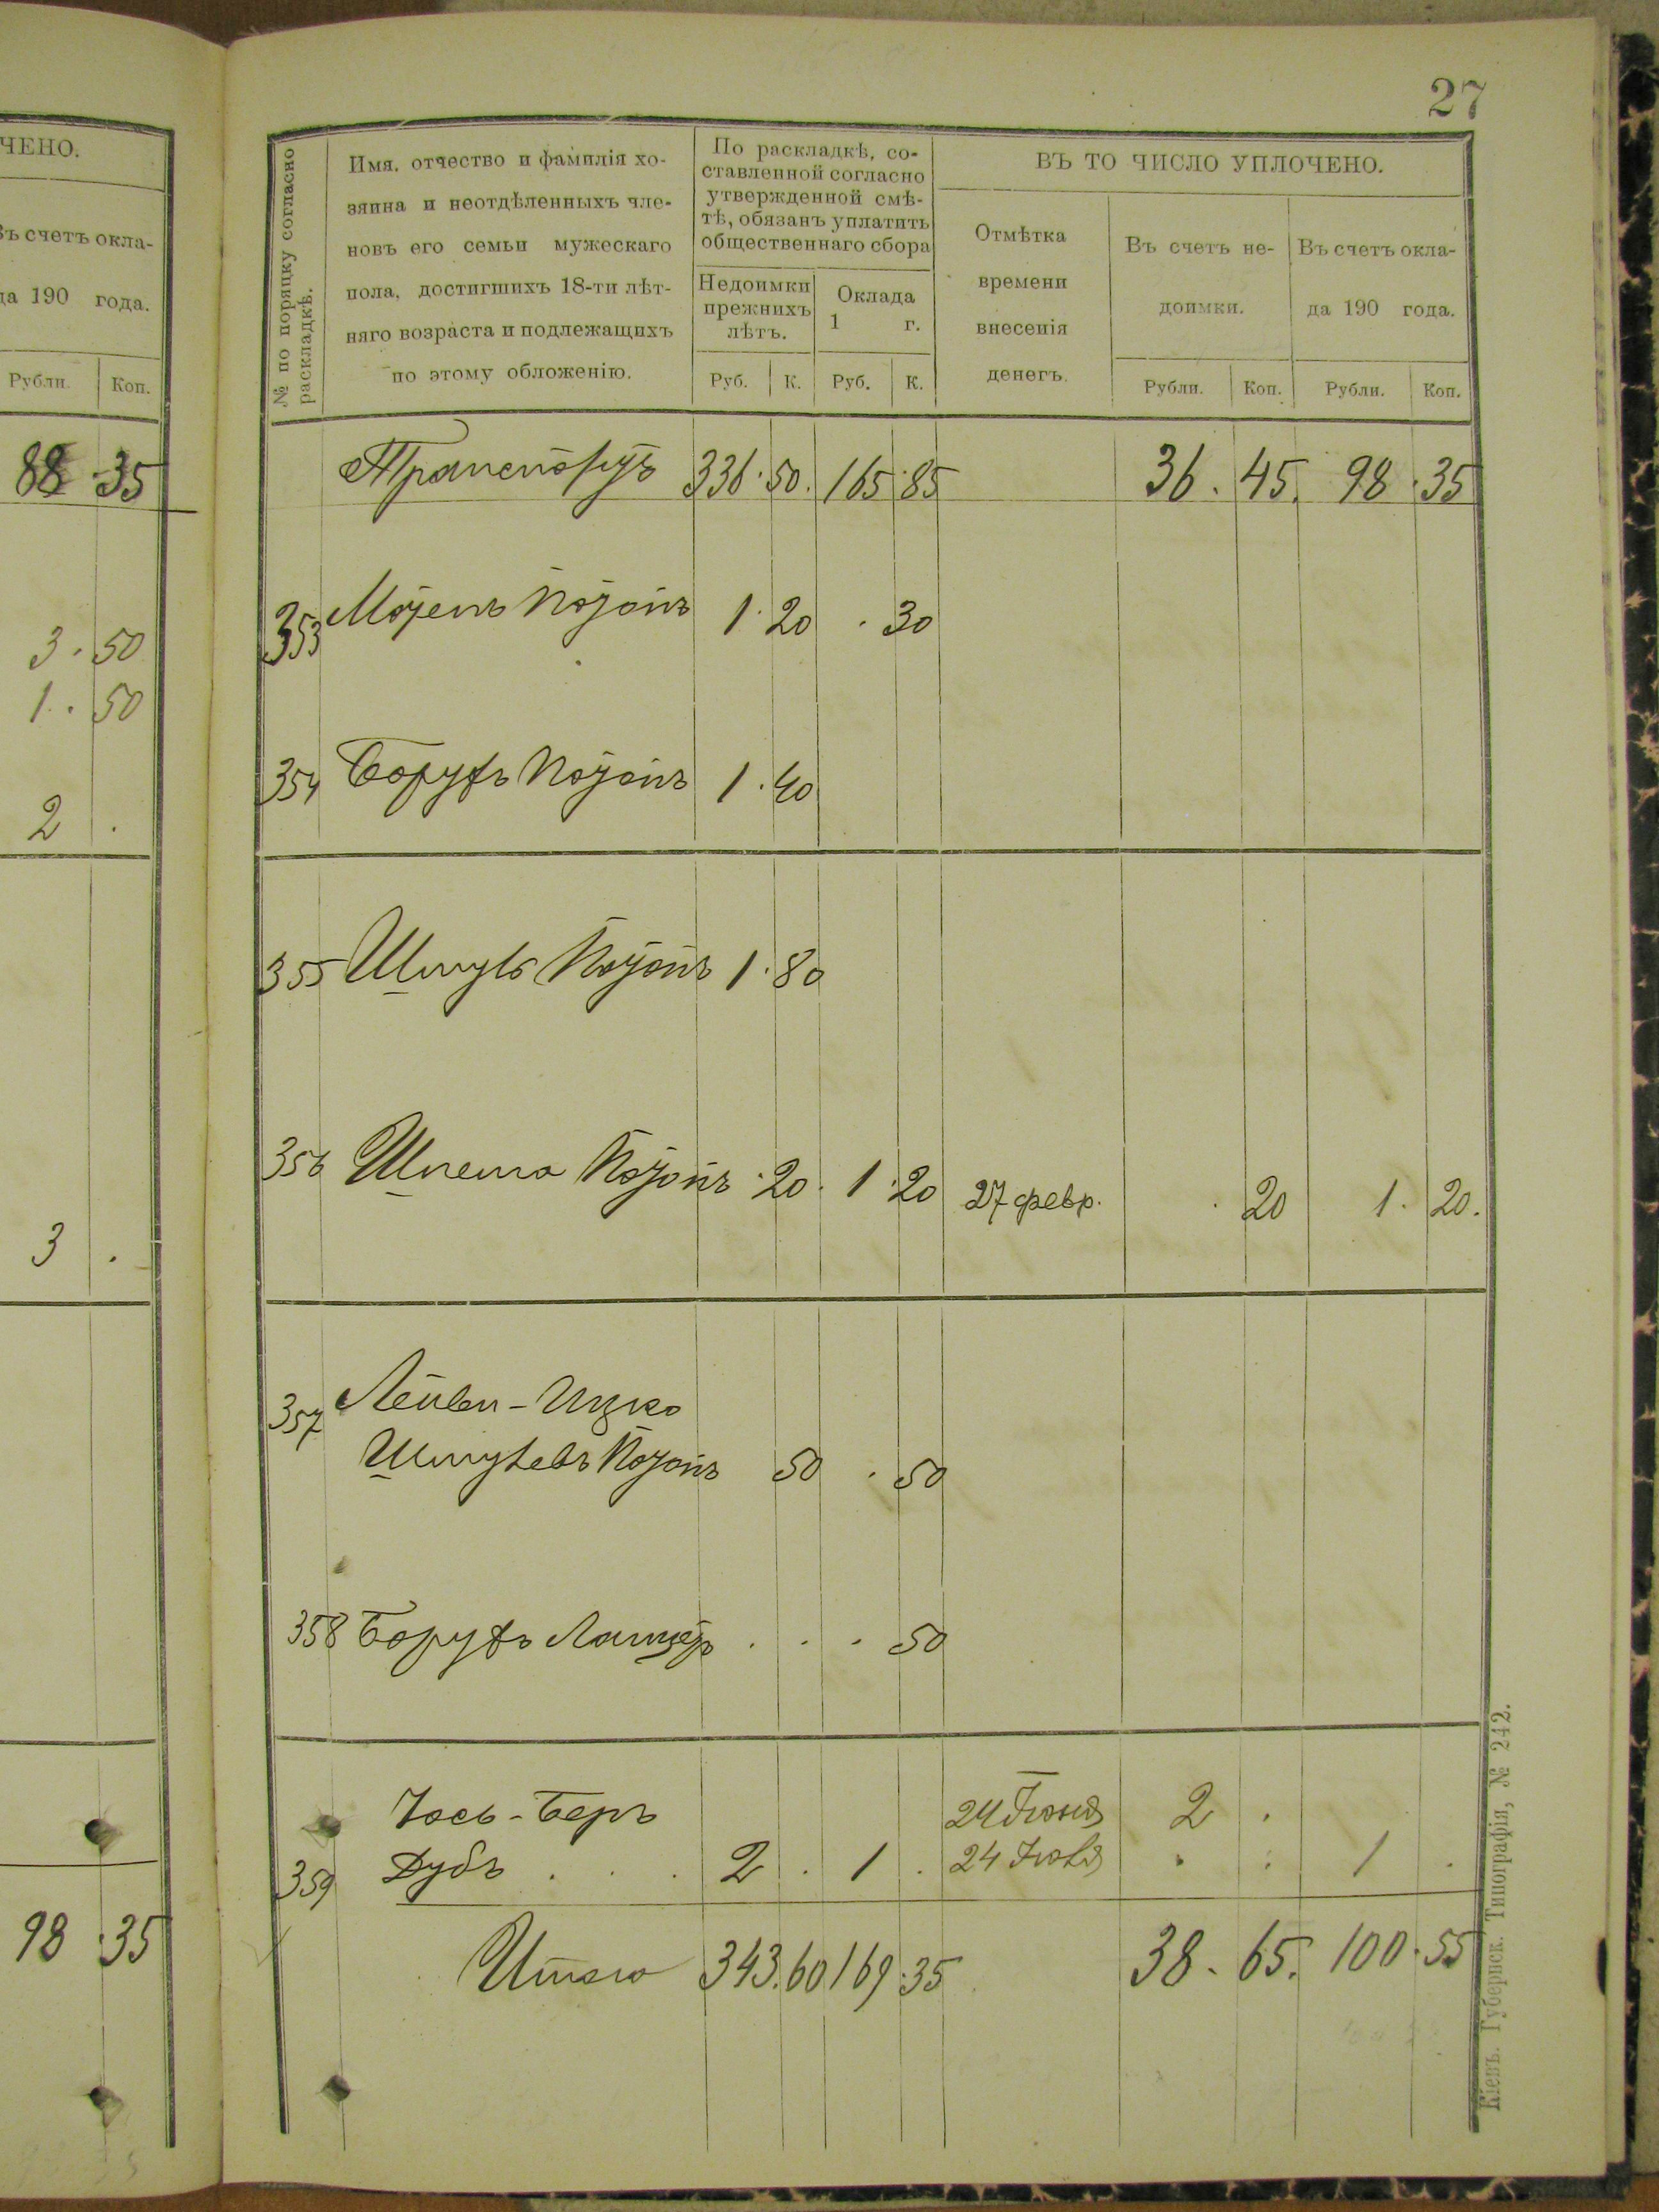 ЧЕНО.
Въ счетъ окла-
да 190 года.
Рубли. Коп.
88 . 35
3 . 50
1 . 50
2 .
3 .
98 . 35
27
№ по порядку согласно
раскладкѣ.
Имя. отчество и фамилія хо-
зяина и неотдѣленныхъ чле-
новъ его семьи мужескаго
пола, достигшихъ 18-ти лѣт-
няго возраста и подлежащихъ
по этому обложенію.
По раскладкѣ, со-
ставленной согласно
утвержденной смѣ-
тѣ, обязанъ уплатить
общественнаго сбора
Недоимки
прежнихъ
лѣтъ.
Руб. К.
Оклада
1 г.
Руб. К.
ВЪ ТО ЧИСЛО УПЛОЧЕНО.
Отмѣтка
времени
внесенія
денегъ.
Въ счетъ не-
доимки.
Рубли. Коп.
Въ счетъ окла-
да 190 года.
Рубли. Коп.
Транспортъ 336 . 50 . 165 . 85 36 . 45 . 98 . 35
353 1 . 20 . 30
354 Борухъ 1 . 40
355 Шмуль 1 . 80
356 . 20 . 1 . 20 27 февр. . 20 1 . 20 .
357 Лейви - Ицко
Шмулевъ 50 . 50
358 Борухъ . . . 50
Іось - Беръ 24 Іюня 2 .
359 Дубъ . . . 2 . 1 . 24 Іюля . . 1 .
Итого 343 . 60 169 . 35 38 . 65 . 100 . 55
Кіевъ. Губернск. Типографія, № 242.